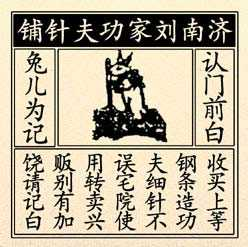 济南刘家功夫针铺
认门前白
兔儿为记
收买上等
钢条造功
夫细针不
误宅院使
用转卖兴
贩别有加
饶请记白